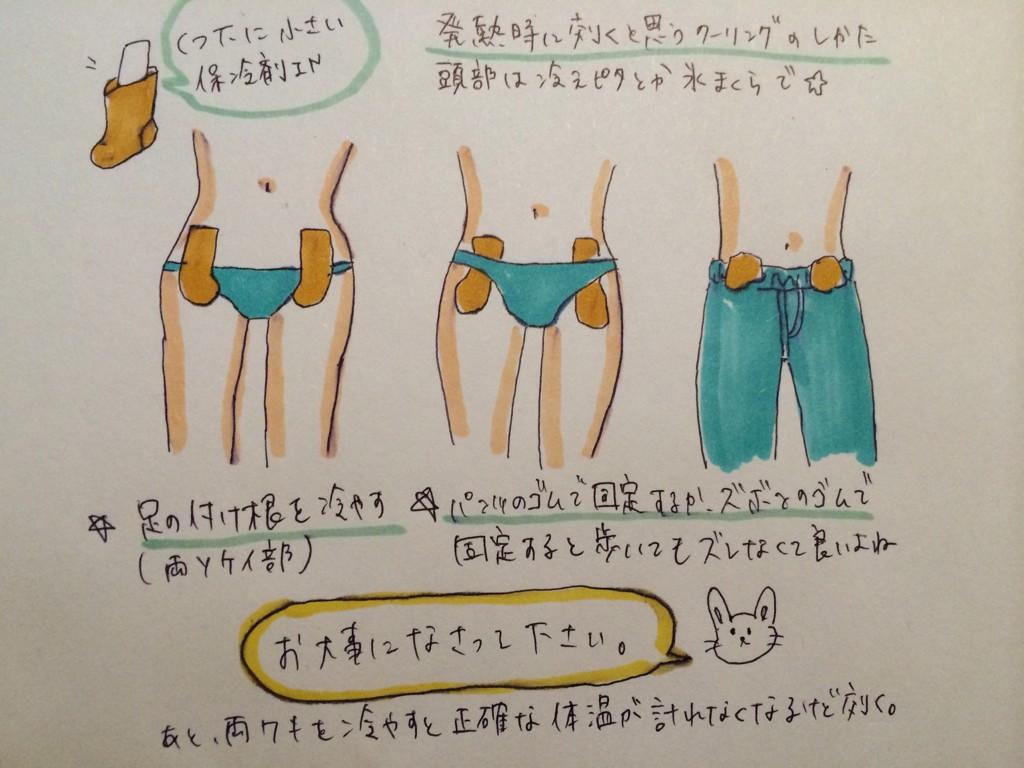 くつ下に小さい
保冷剤IN
発熱時に効くと思うクーリングのしかた
頭部は冷えピタとか氷まくらで☆
☆ 足の付け根を冷やす
(両ソケイ部)
☆ パンツのゴムで固定するか、ズボンのゴムで
固定すると歩いてもズレなくて良いよね
お大事になさって下さい。
あと、両ワキを冷やすと正確な体温が計れなくなるけど効く。